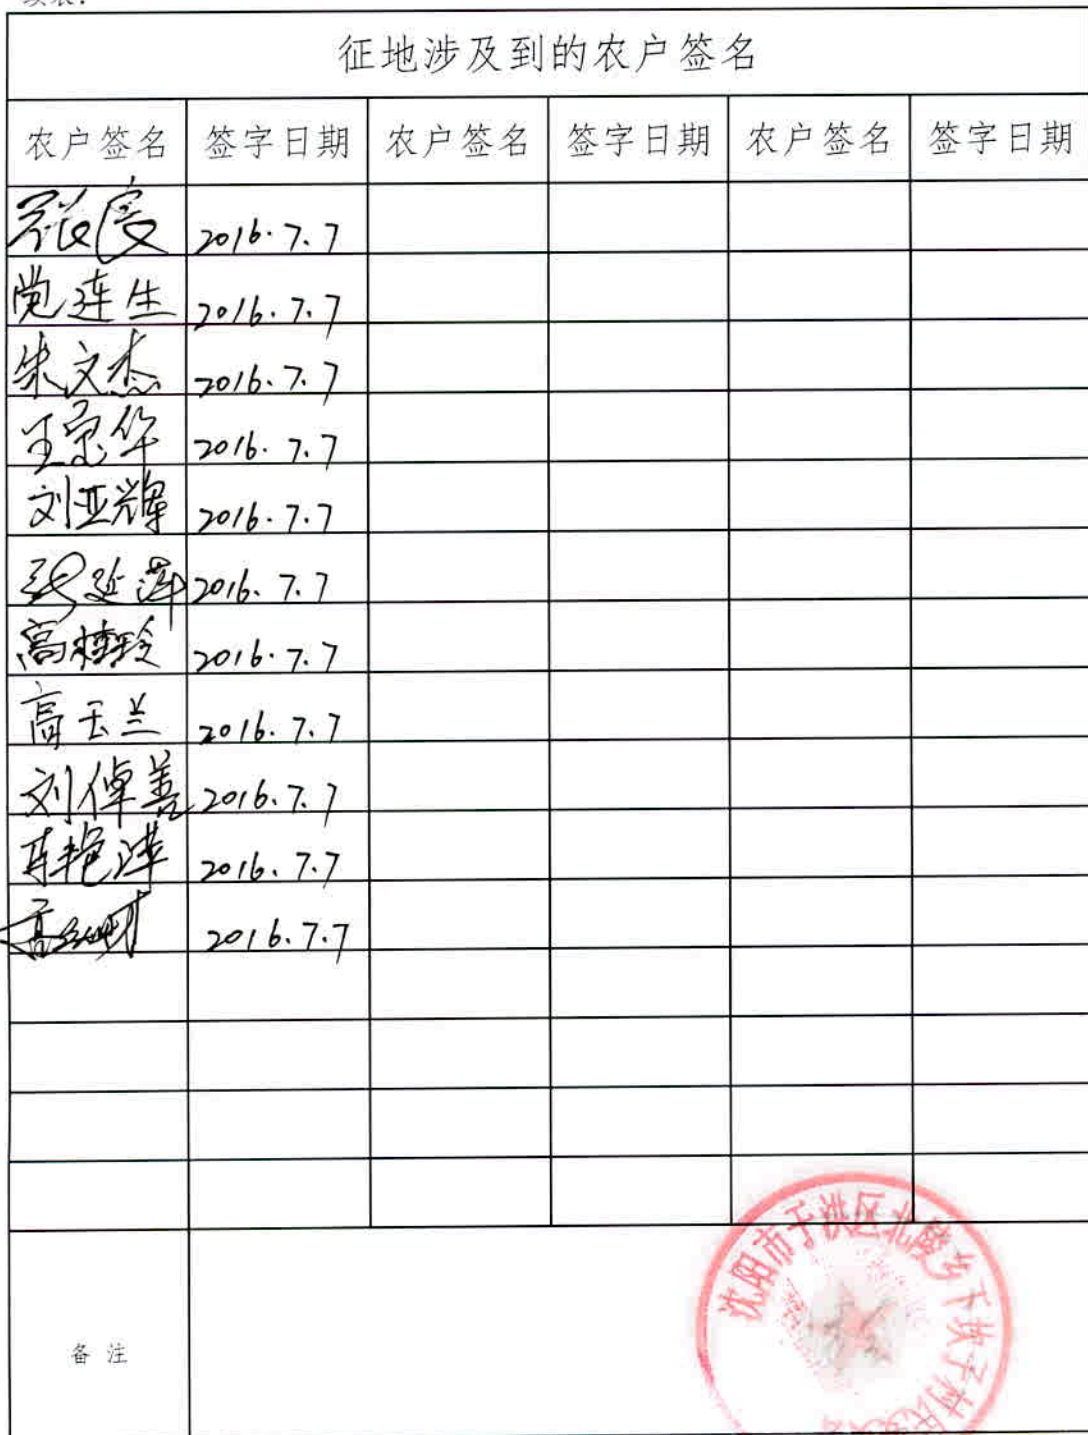 征地涉及到的农户签名
农户签名 签字日期 农户签名 签字日期 农户签名 签字日期
2016.7.7
党连生 2016.7.7
朱文杰 2016.7.7
王宝华 2016.7.7
刘亚辉 2016.7.7
张延萍 2016.7.7
高桂玲 2016.7.7
高玉兰 2016.7.7
刘倬善 2016.7.7
2016.7.7
2016.7.7
备注
沈阳市于洪区北陵乡下坎子村民委员会